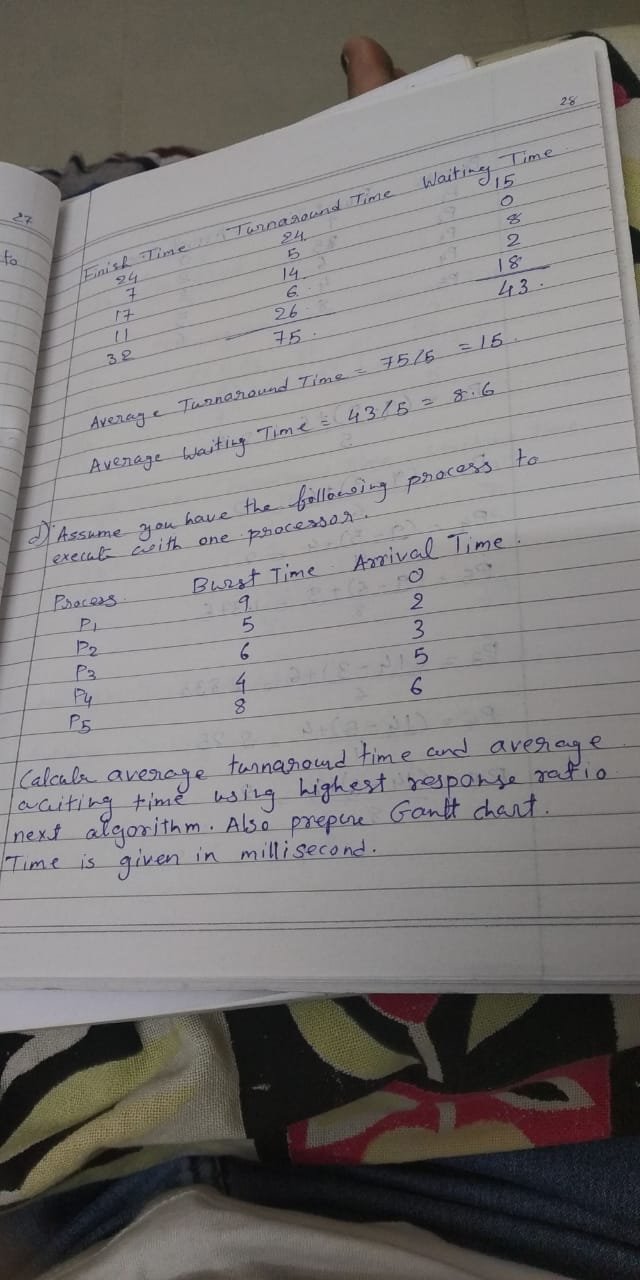 28
27
to
Finish Time Turnaround Time Waiting Time
24 24 15
7 5 0
17 14 8
11 6 2
32 26 18
75. 43.
Average Turnaround Time = 75/5 = 15.
Average Waiting Time = 43/5 = 8.6
d) Assume you have the following process to
execute with one processor.
Process Burst Time Arrival Time.
P1 9 0
P2 5 2
P3 6 3
P4 4 5
P5 8 6
Calcule average turnaround time and average
waiting time using highest response ratio
next algorithm. Also prepere Gantt chart.
Time is given in millisecond.